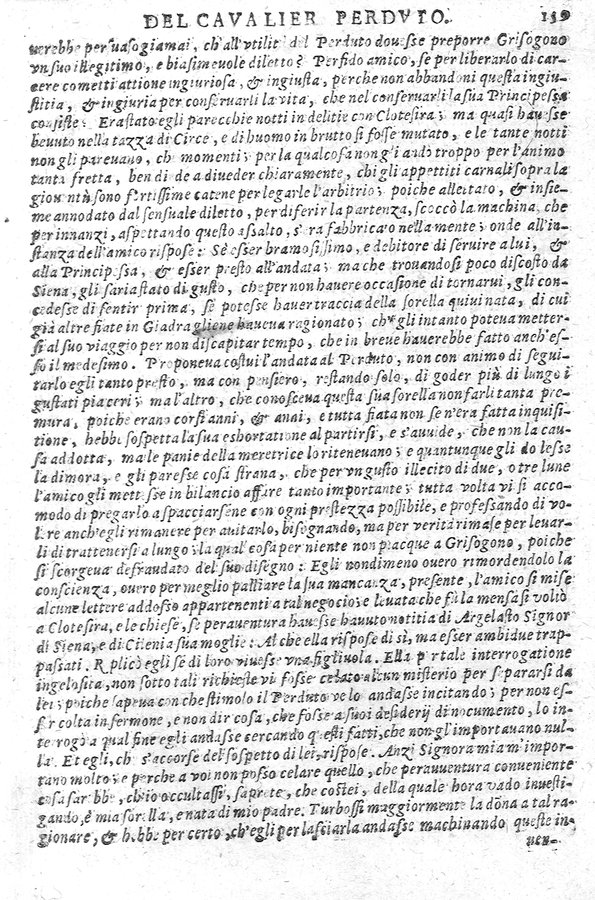 DEL CAVALIER PERDVTO. 159
uerebbe persuaso giamai, ch'all'utilità del Perduto douesse preporre Grisogono
vn suo illegitimo, e biasimeuole diletto? Perfido amico, se per liberarlo di car-
cere cometti attione ingiuriosa, & ingiusta, perche non abbandoni questa ingiu-
stitia, & ingiuria per conseruarli la vita, che nel conseruarli la sua Principessa
consiste? Era stato egli parecchie notti in delitie con Clotesira; ma quasi hauesse
beuuto nella tazza di Circe, e di huomo in brutto si fosse mutato, e le tante notti
non gli pareuano, che momenti; per la qual cosa non gli andò troppo per l'animo
tanta fretta, ben diede a diueder chiaramente, chi gli appetiti carnali sopra la
giouentù sono fortissime catene per legarle l'arbitrio; poiche allettato, & insie-
me annodato dal sensuale diletto, per diferir la partenza, scoccò la machina, che
per innanzi, aspettando questo assalto, s'era fabbricato nella mente; onde all'in-
stanza dell'amico rispose: Sè esser bramosissimo, e debitore di seruire a lui, &
alla Principessa, & esser presto all'andata; ma che trouandosi poco discosto da
Siena, gli saria stato di gusto, che per non hauere occasione di tornarui, gli con-
cedesse di sentir prima, se potesse hauer traccia della sorella quiui nata, di cui
già altre fiate in Giadra gliene haueua ragionato; che gli intanto poteua metter-
si al suo viaggio per non discapitar tempo, che in breue hauerebbe fatto anch'es-
so il medesimo. Proponeua costui l'andata al Perduto, non con animo di segui-
tarlo egli tanto presto, ma con pensiero, restando solo, di goder più di lungo i
gustati piaceri; ma l'altro, che conosceua questa sua sorella non farli tanta pre-
mura, poiche erano corsi anni, & anni, e tutta fiata non se n'era fatta inquisi-
tione, hebbe sospetta la sua eshortatione al partirsi, e s'auuide, che non la cau-
sa addotta, ma le panie della meretrice lo riteneuano; e quantunque gli dolesse
la dimora, e gli paresse cosa strana, che per vn gusto illecito di due, o tre lune
l'amico gli mettesse in bilancio affare tanto importante; tutta volta vi si acco-
modò di pregarlo a spacciarsene con ogni prestezza possibile, e professando di vo-
lere anch'egli rimanere per aiutarlo, bisognando, ma per verità rimase per leuar-
li di trattenersi a lungo; la qual cosa per niente non piacque a Grisogono, poiche
si scorgeua defraudato del suo disegno: Egli nondimeno ouero rimordendolo la
conscienza, ouero per meglio palliare la sua mancanza, presente, l'amico si mise
alcune lettere addosso appartenenti a tal negocio; e leuata che fù la mensa si voltò
a Clotesira, e le chiese, se perauentura hauesse hauuto notitia di Argelasto Signor
di Siena, e di Citenia sua moglie: Al che ella rispose di sì, ma esser ambidue trap-
passati. Replicò egli se di loro viuesse vna figliuola. Ella per tale interrogatione
ingelosita, non sotto tali richieste vi fosse celato alcun misterio per separarsi da
lei; poiche sapeua con che stimolo il Perduto ve lo andasse incitando; per non es-
ser colta in fermone, e non dir cosa, che fosse a suoi desiderij di nocumento, lo in-
terrogò a qual fine egli andasse cercando questi fatti, che non gl'importauano nul-
la. Et egli, ch s'accorse del sospetto di lei, rispose. Anzi Signora mia m'impor-
tano molto; e perche a voi non posso celare quello, che perauuentura conueniente
cosa sarebbe, ch'io occultassi, saprete, che costei, della quale hora vado inuesti-
gando, è mia sorella, e nata di mio padre. Turbossi maggiormente la dõna a tal ra-
gionare, & hebbe per certo, ch'egli per lasciarla andasse machinando queste in-
uen-